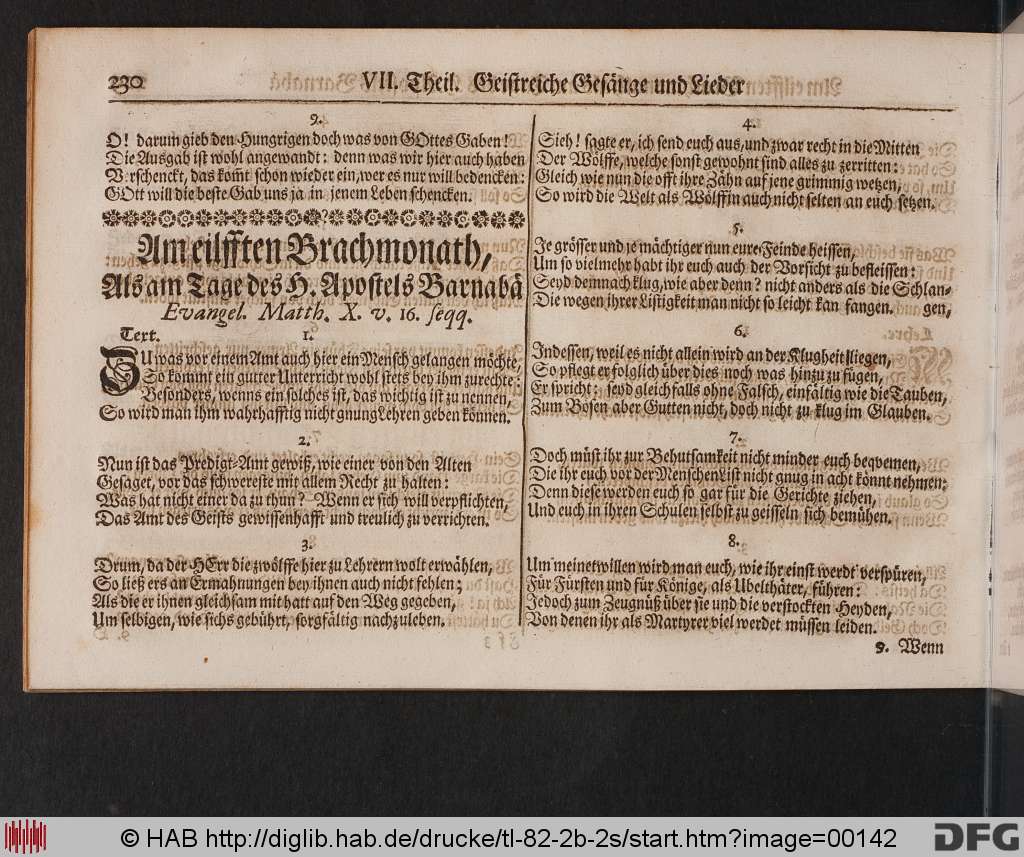 230 VII. Theil. Geistreiche Gesänge und Lieder
9.
O! darum gieb den Hungrigen doch was von GOttes Gaben!
Die Ausgab ist wohl angewandt: denn was wir hier auch haben
Verschenckt, das kom̃t schon wieder ein, wer es nur will bedencken:
GOtt will die beste Gab uns ja in jenem Leben schencken.
Am eilfften Brachmonath,
Als am Tage des H. Apostels Barnabä
Evangel. Matth. X. v. 16. seqq.
Text. 1.
ZU was vor einem Amt auch hier ein Mensch gelangen möchte,
So kömmt ein gutter Unterricht wohl stets bey ihm zurechte:
Besonders, wenns ein solches ist, das wichtig ist zu nennen,
So wird man ihm wahrhafftig nicht gnung Lehren geben können.
2.
Nun ist das Predigt-Amt gewiß, wie einer von den Alten
Gesaget, vor das schwereste mit allem Recht zu halten:
Was hat nicht einer da zu thun? Wenn er sich will verpflichten,
Das Amt des Geists gewissenhafft und treulich zu verrichten.
3.
Drum, da der HErr die zwölffe hier zu Lehrern wolt erwählen,
So ließ ers an Ermahnungen bey ihnen auch nicht fehlen;
Als die er ihnen gleichsam mit hatt auf den Weg gegeben,
Um selbigen, wie sichs gebührt, sorgfältig nachzuleben.
4.
Sieh! sagte er, ich send euch aus, und zwar recht in die Mitten
Der Wölffe, welche sonst gewohnt sind alles zu zerritten:
Gleich wie nun die offt ihre Zähn auf jene grimmig wetzen,
So wird die Welt als Wölffin auch nicht selten an euch setzen.
5.
Je grösser und je mächtiger nun eure Feinde heissen,
Um so vielmehr habt ihr euch auch der Vorsicht zu befleissen:
Seyd demnach klug, wie aber denn? nicht anders als die Schlan-
Die wegen ihrer Listigkeit man nicht so leicht kan fangen. gen,
6.
Indessen, weil es nicht allein wird an der Klugheit lliegen,
So pflegt er folglich über dies noch was hinzu zu fügen,
Er spricht: seyd gleichfalls ohne Falsch, einfältig wie die Tauben,
Zum Bösen aber Gutten nicht, doch nicht zu klug im Glauben.
7.
Doch müst ihr zur Behutsamkeit nicht minder euch beqvemen,
Die ihr euch vor der Menschen List nicht gnug in acht könnt nehmen:
Denn diese werden euch so gar für die Gerichte ziehen,
Und euch in ihren Schulen selbst zu geisseln sich bemühen.
8.
Um meinetwillen wird man euch, wie ihr einst werdt verspüren,
Für Fürsten und für Könige, als Ubelthäter, führen:
Jedoch zum Zeugnüß über sie und die verstockten Heyden,
Von denen ihr als Martyrer viel werdet müssen leiden.
9. Wenn
© HAB http://diglib.hab.de/drucke/tl-82-2b-2s/start.htm?image=00142
DFG